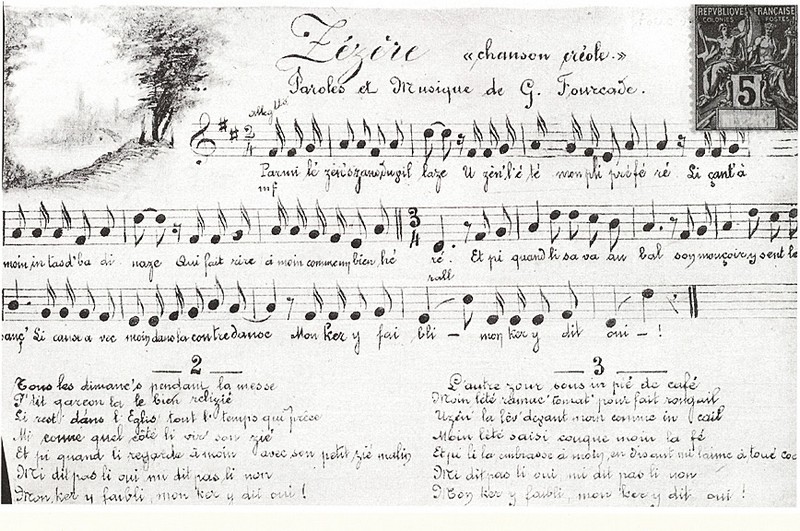 Zézère «chanson créole.»
Paroles et Musique de G. Fourcade.
RÉPUBLIQUE FRANÇAISE
COLONIES POSTES
5
2
4
mf
Parmi lé
U zèn' l'é té mon pli préfé ré Li çant' à
moin in tas d'ba di naze Qui fait rire à moin comme un bien hé
3
4
ré. Et pi quand li sa va au bal son mouçoir y sent le
rall
Li cause a vec moin dans la contredanse Mon ker y fai bli — mon ker y dit oui — !
2
Tous les dimanc's pendant la messe
P'tit garçon là le bien relizié
Li rest' dans l'Eglis' tout l'temps qui prèse
Mi conne quel côté li vir' son zié
Et pi quand li regarde à moin avec son petit zié malin
Mi dit pas li oui mi dit pas li non
Mon ker y faibli, mon ker y dit oui !
3
L'autre zour sous in pié de café
Moin l'été ramac' tomat' pour fait rougail
U zèn' là lèv' devant moin comme in cail
Moin l'été saisi couque moin la fé
Et pi li la embrasse à moin, en disant mi t'aime à toué
Mi dit pas li oui, mi dit pas li non
Mon ker y faibli, mon ker y dit oui !